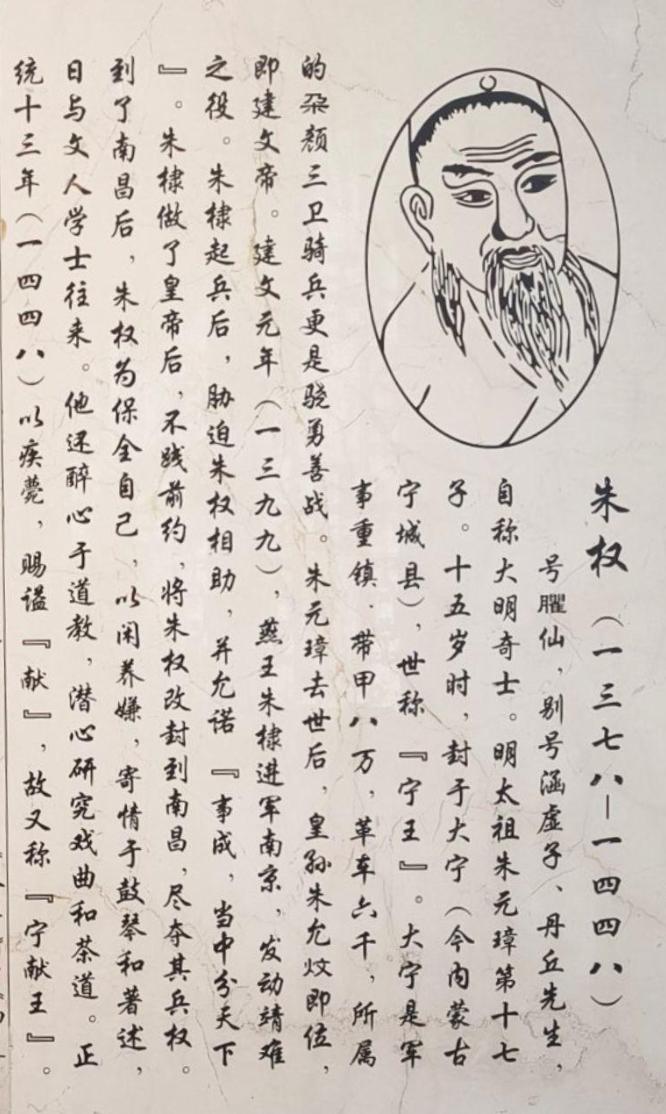 朱权（一三七八—一四四八）
号臞仙，别号涵虚子、丹丘先生，
自称大明奇士。明太祖朱元璋第十七
子。十五岁时，封于大宁（今内蒙古
宁城县），世称『宁王』。大宁是军
事重镇，带甲八万，革车六千，所属
的朵颜三卫骑兵更是骁勇善战。朱元璋去世后，皇孙朱允炆即位，
即建文帝。建文元年（一三九九），燕王朱棣进军南京，发动靖难
之役。朱棣起兵后，胁迫朱权相助，并允诺『事成，当中分天下
』。朱棣做了皇帝后，不践前约，将朱权改封到南昌，尽夺其兵权。
到了南昌后，朱权为保全自己，以闲养嫌，寄情于鼓琴和著述，
日与文人学士往来。他还醉心于道教，潜心研究戏曲和茶道。正
统十三年（一四四八）以疾薨，赐谥『献』，故又称『宁献王』。